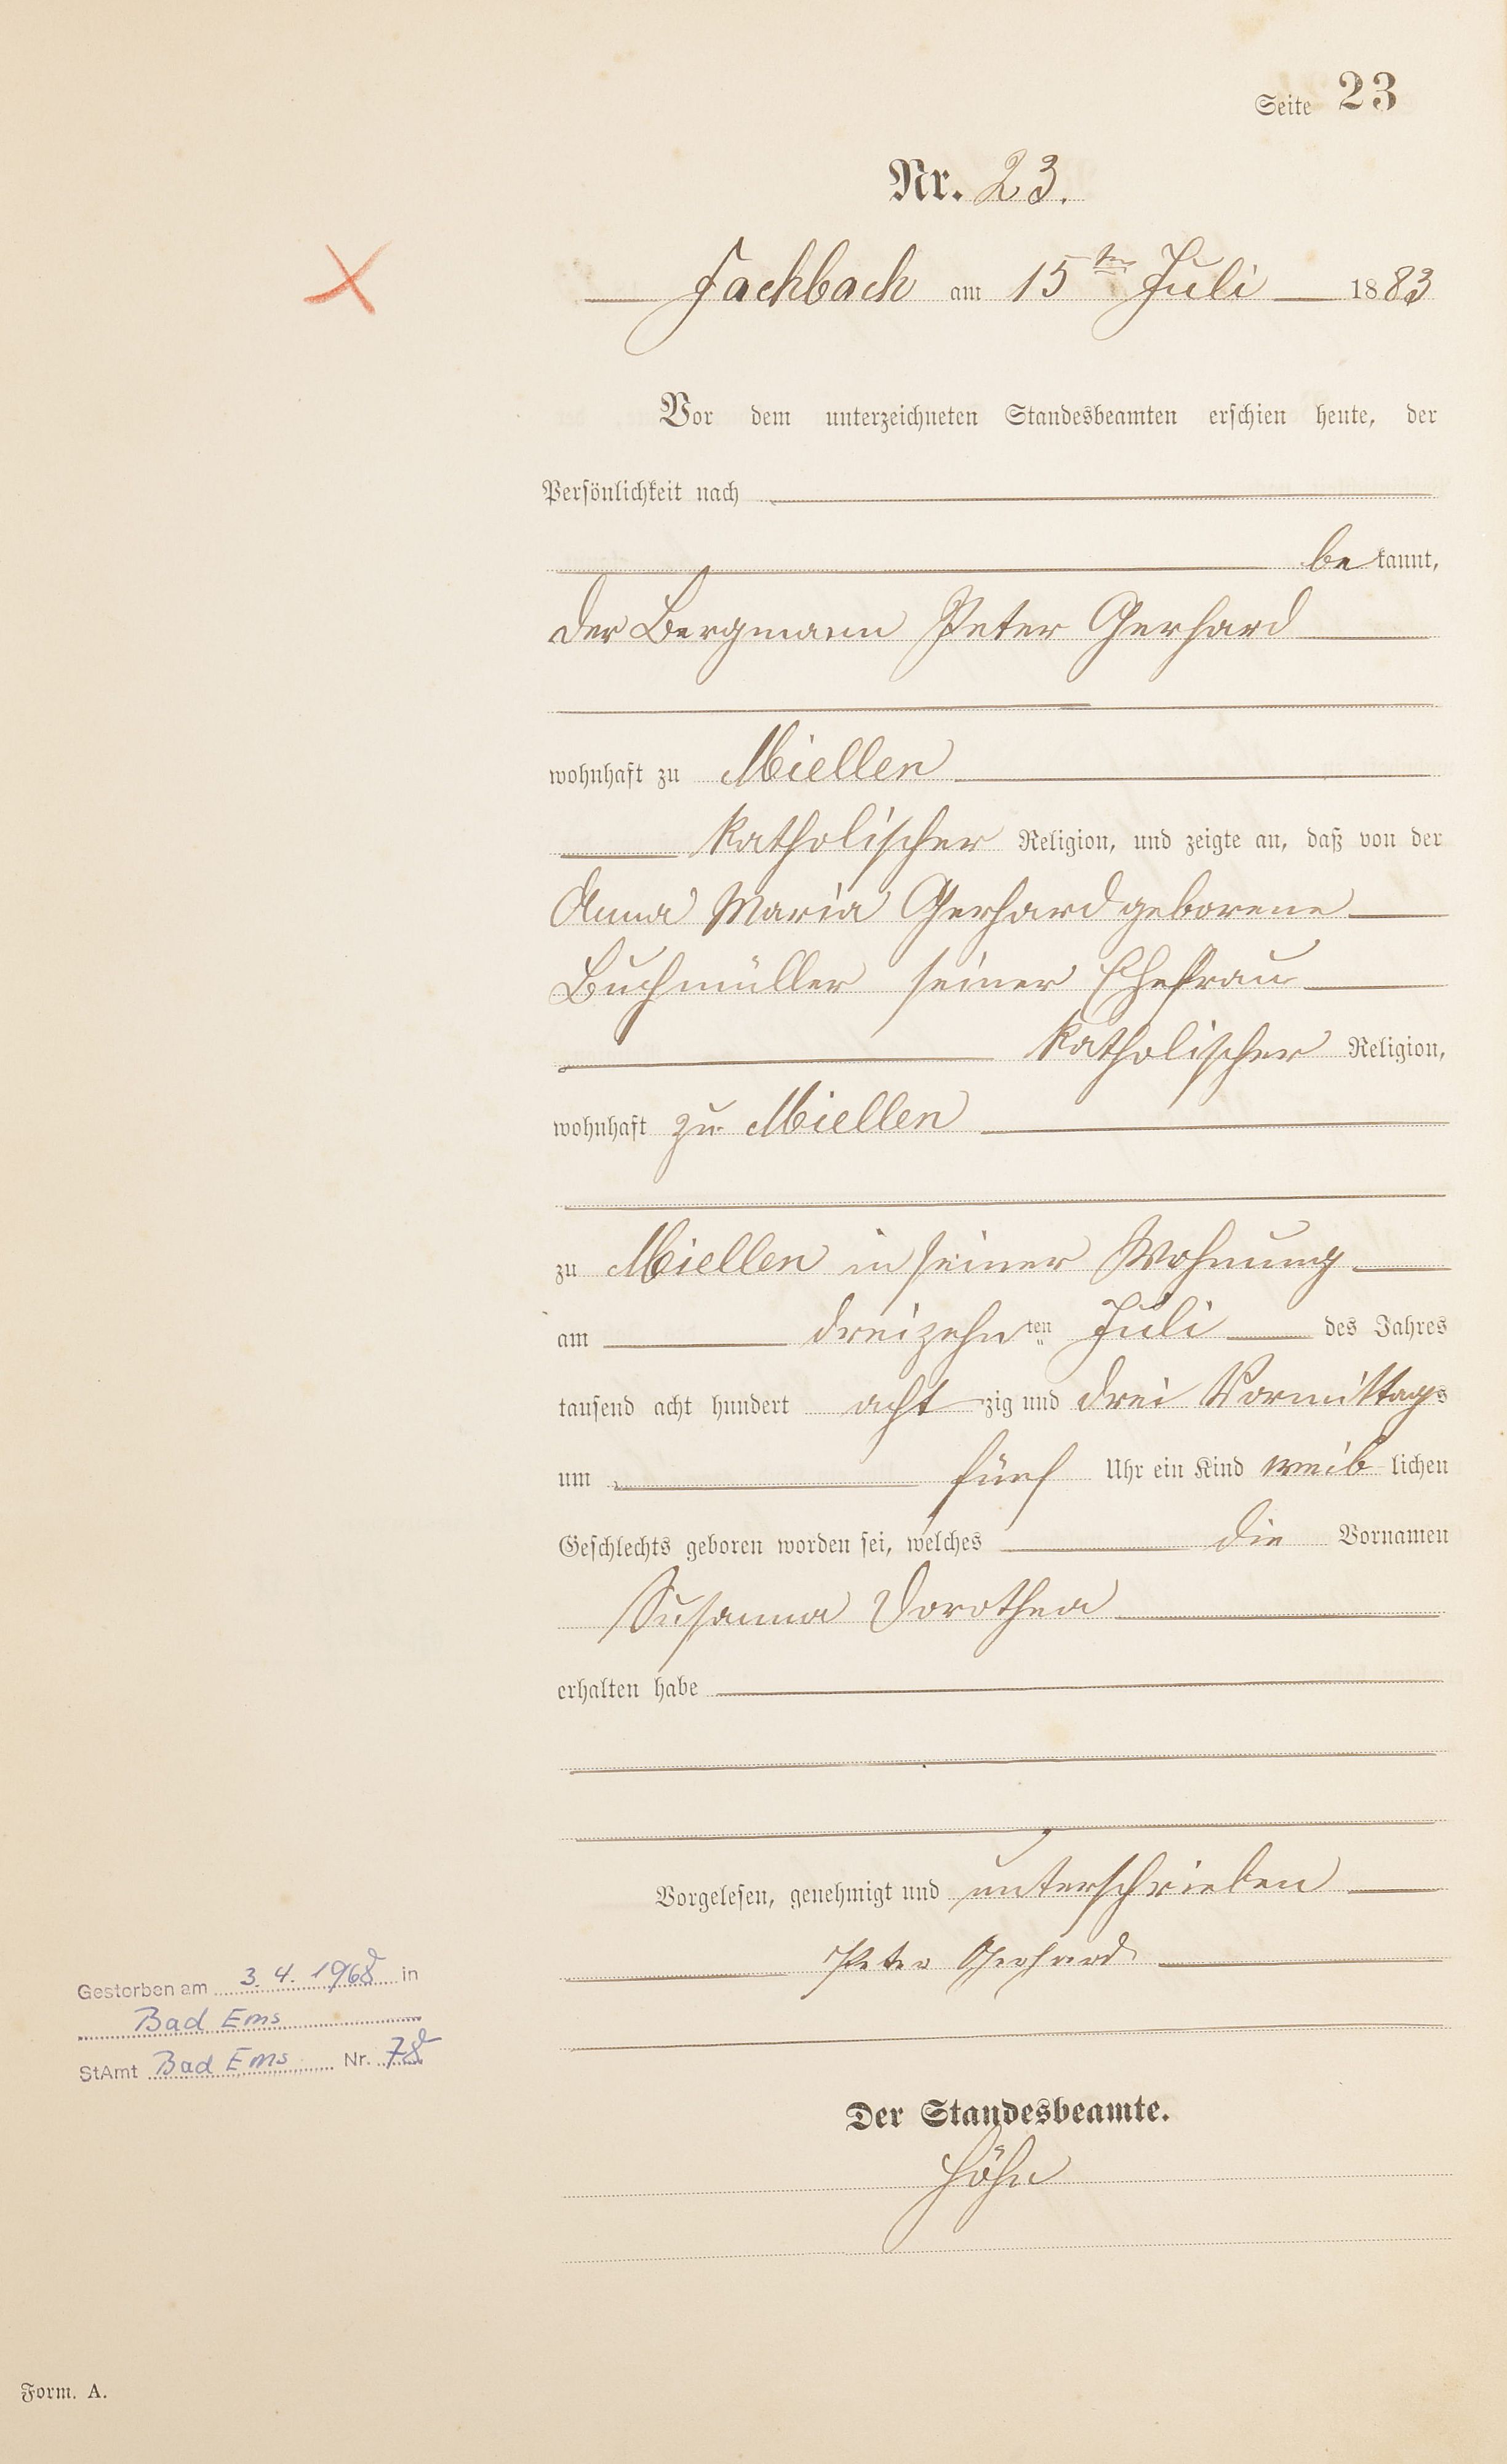 Seite 23
Nr. 23.
Fachbach am 15ten Juli 1883
Vor dem unterzeichneten Standesbeamten erschien heute, der
Persönlichkeit nach
be kannt,
der Bergmann Peter Gerhard
wohnhaft zu Miellen
katholischer Religion, und zeigte an, daß von der
Anna Maria Gerhard geborene
Buchmüller seiner Ehefrau
katholischer Religion,
wohnhaft zu Miellen
zu Miellen in seiner Wohnung
am dreizehnten Juli des Jahres
tausend acht hundert acht zig und drei Vormittags
um fünf Uhr ein Kind weib lichen
Geschlechts geboren worden sei, welches die Vornamen
Susanna Dorothea
erhalten habe
Vorgelesen, genehmigt und unterschrieben
Peter Gerhard
Gestorben am 3.4.1968 in
Bad Ems
StAmt Bad Ems Nr. 78
Der Standesbeamte.
Höhn
Form. A.